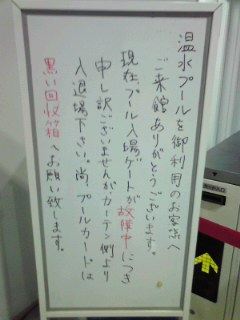 温水プールを御利用のお客様へ
ご来館ありがとうございます。
現在プール入場ゲートが故障中につき
申し訳ございませんがカーテン側より
入退場下さい。尚、プールカードは
黒い回収箱へお願い致します。